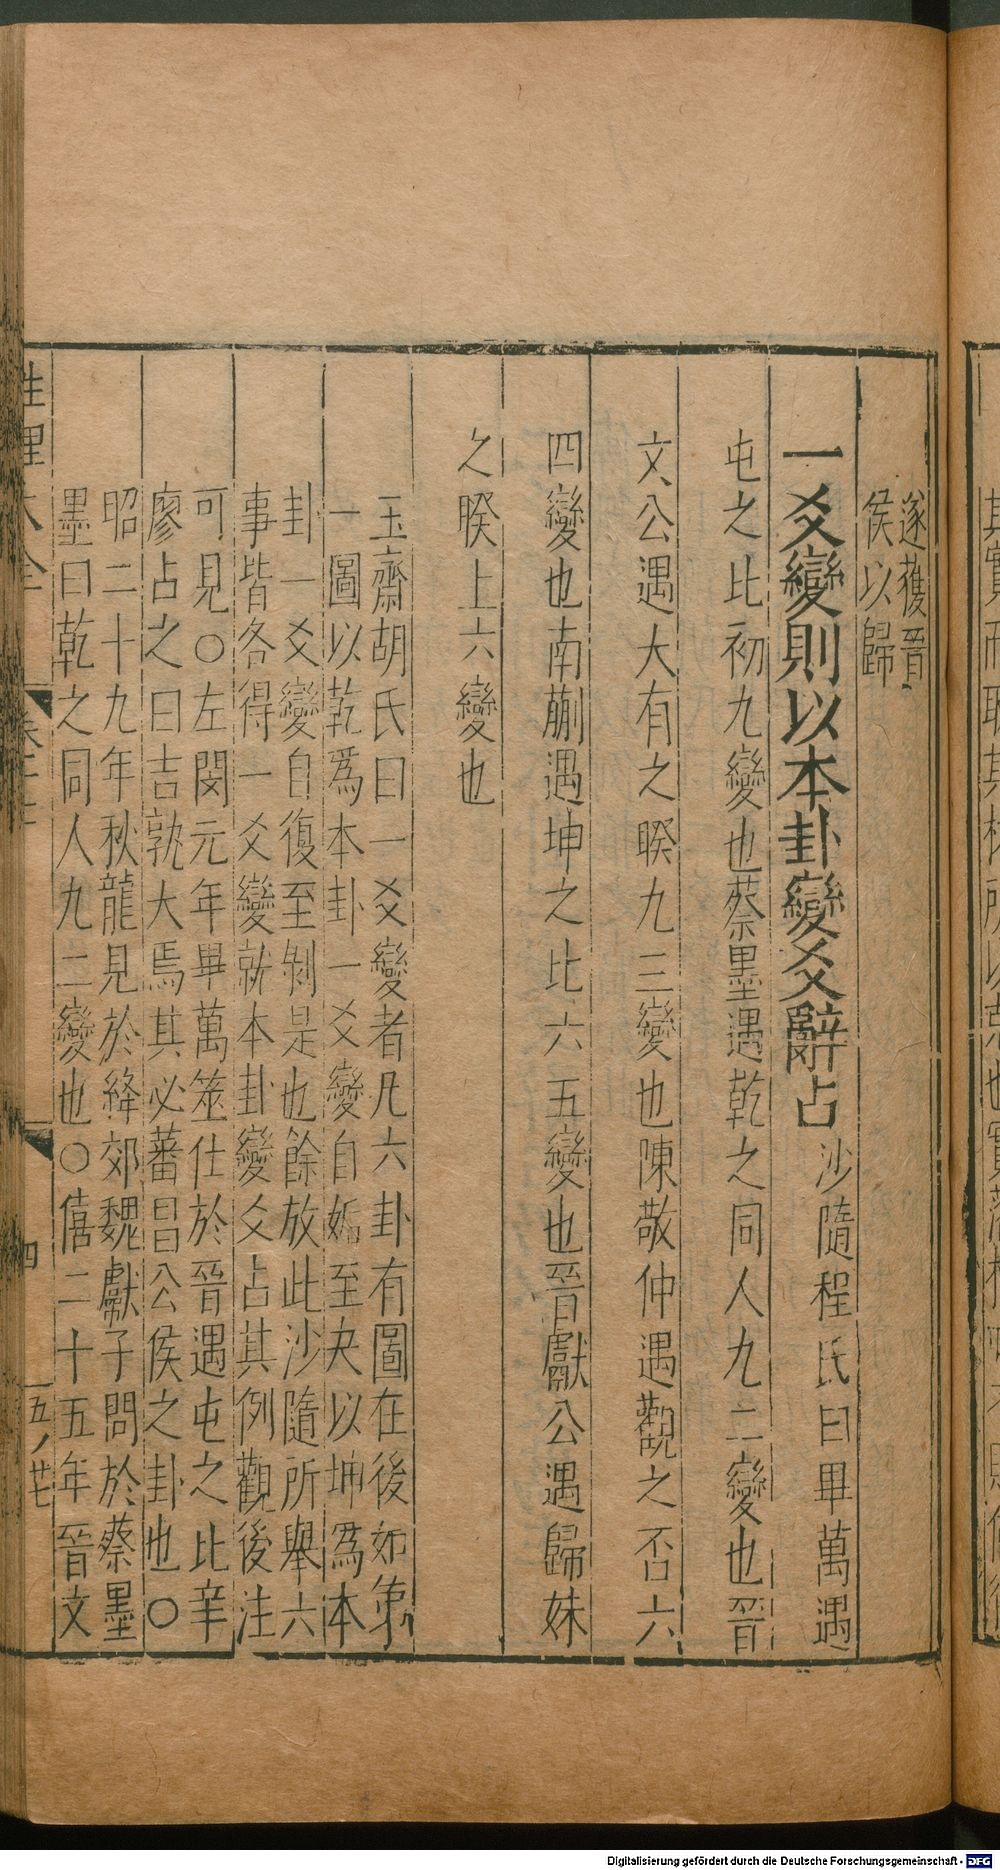 遂獲晉
侯以歸
一爻變則以本卦變爻辭占沙隨程氏曰畢萬遇
屯之比初九變也蔡墨遇乾之同人九二變也晉
文公遇大有之睽九三變也陳敬仲遇觀之否六
四變也南蒯遇坤之比六五變也晉獻公遇歸妹
之睽上六變也
玉齋胡氏曰一爻變者凡六卦有圖在後如第
一圖以乾爲本卦一爻變自姤至夬以坤爲本
卦一爻變自復至剝是也餘放此沙隨所舉六
事皆各得一爻變就本卦變爻占其例觀後注
可見○左閔元年畢萬筮仕於晉遇屯之比辛
廖占之曰吉孰大焉其必蕃昌公侯之卦也○
昭二十九年秋龍見於絳郊魏獻子問於蔡墨
墨曰乾之同人九二變也○僖二十五年晉文
性理大全
四
Digitalisierung gefördert durch die Deutsche Forschungsgemeinschaft - DFG